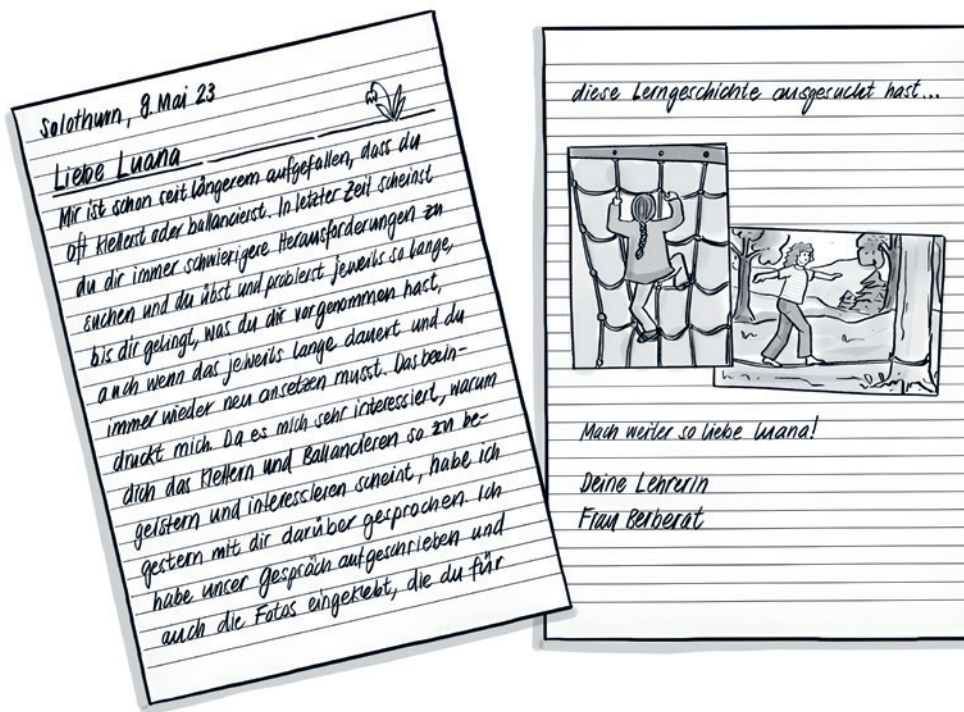 Solothurn, 8. Mai 23
Liebe Luana
Mir ist schon seit längerem aufgefallen, dass du
oft kletterst oder ballancierst. In letzter Zeit scheinst
du dir immer schwierigere Herausforderungen zu
suchen und du übst und probierst jeweils so lange,
bis dir gelingt, was du dir vorgenommen hast,
auch wenn das jeweils lange dauert und du
immer wieder neu ansetzen musst. Das beein-
druckt mich. Da es mich sehr interessiert, warum
dich das Klettern und Ballancieren so zu be-
geistern und interessieren scheint, habe ich
gestern mit dir darüber gesprochen. Ich
habe unser Gespräch aufgeschrieben und
auch die Fotos eingeklebt, die du für
diese Lerngeschichte ausgesucht hast...
Mach weiter so liebe Luana!
Deine Lehrerin
Frau Berberat